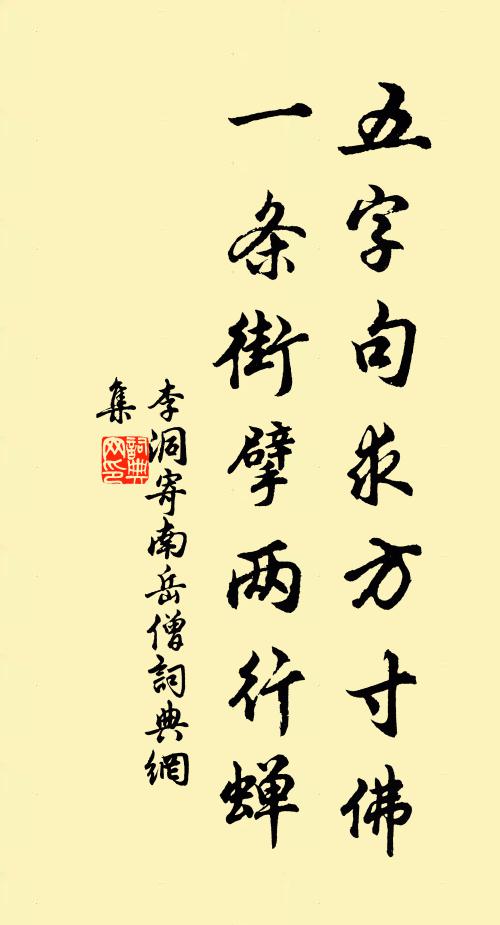 五字句求方寸佛
一条街擘两行蝉
李洞寄南岳僧詞典網
集
詞典
网印